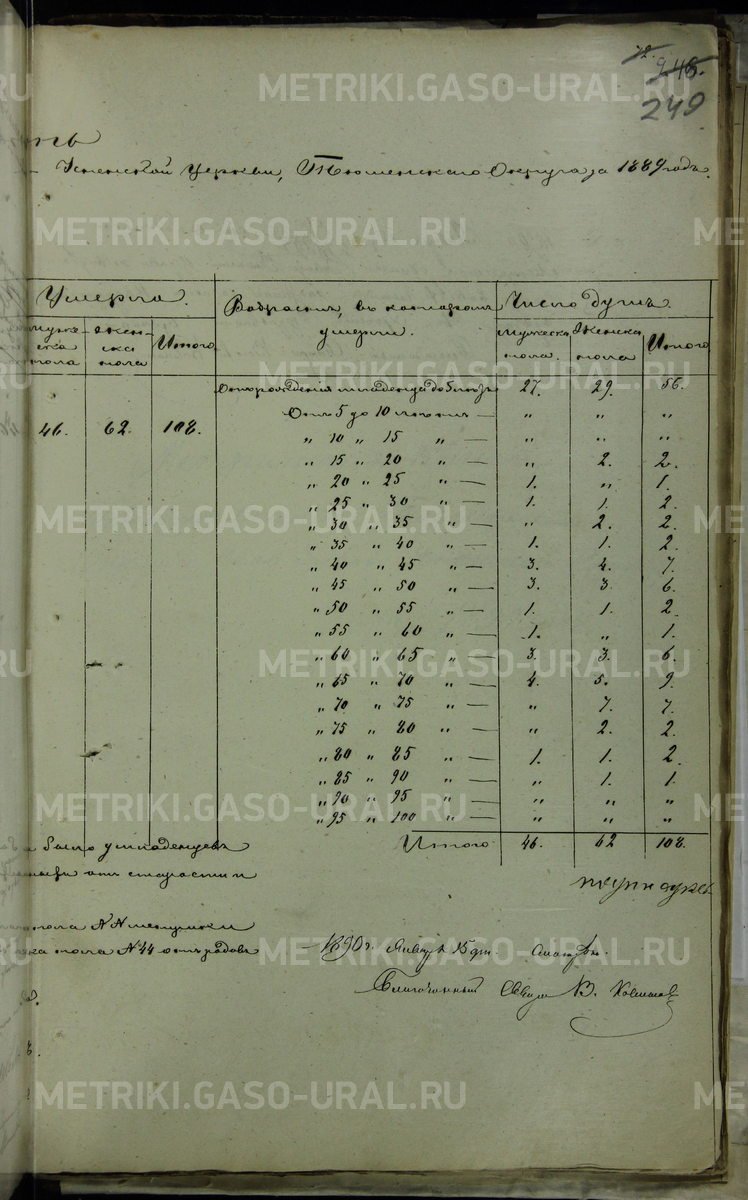 METRIKI.GASO-URAL.RU
72.
246.
249
Успенской Церкви, Тюменскаго Округа за 1889 годъ.
Умерло. Возрастъ, въ которомъ умерли. Число душъ.
муже-ска пола женс-ка пола Итого мужеска пола. Женска пола Итого
Отъ рожденія младенца до 5 лѣтъ 27. 29. 56.
46. 62. 108.
Отъ 5 до 10 „ „ „
„ 10 „ 15 „ — „ „ „
„ 15 „ 20 „ — „ 2. 2.
„ 20 „ 25 „ — 1. „ 1.
„ 25 „ 30 „ — 1. 1. 2.
„ 30 „ 35 „ — „ 2. 2.
„ 35 „ 40 „ — 1. 1. 2.
„ 40 „ 45 „ — 3. 4. 7.
„ 45 „ 50 „ — 3. 3. 6.
„ 50 „ 55 „ — 1. 1. 2.
„ 55 „ 60 „ — 1. „ 1.
„ 60 „ 65 „ — 3. 3. 6.
„ 65 „ 70 „ — 4. 5. 9.
„ 70 „ 75 „ — „ 7. 7.
„ 75 „ 80 „ — „ 2. 2.
„ 80 „ 85 „ — 1. 1. 2.
„ 85 „ 90 „ — „ 1. 1.
„ 90 „ 95 „ — „ „ „
„ 95 „ 100 „ — „ „ „
Итого 46. 62 108.
было у младенцевъ
отъ старости и
пола №
пола № 44 отъ родовъ
1890 г. Января 15 дня.
Благочинный Свящ. В.